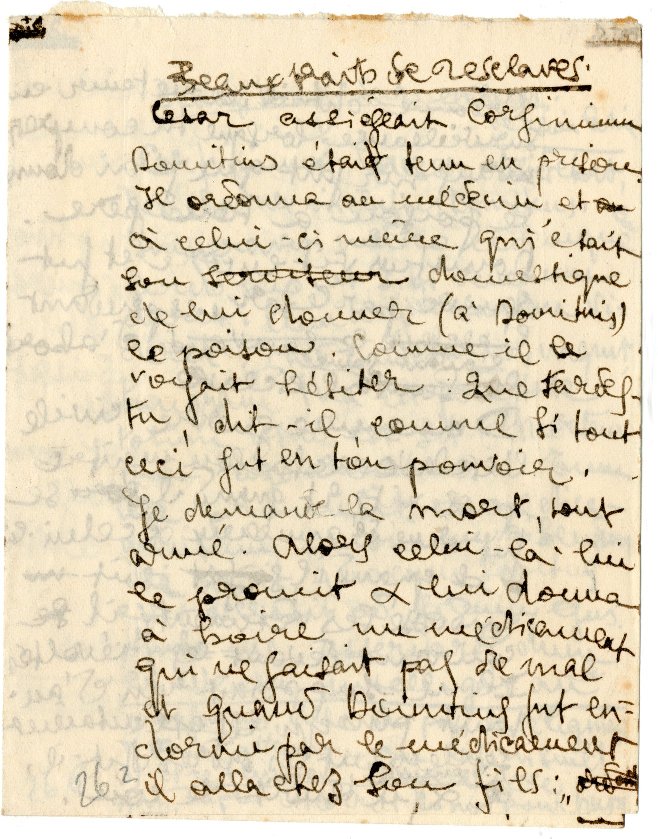 Beaux traits de esclaves.
César assiégeait Corfinium
Domitius était tenu en prison.
Il ordonna au médecin et au
à celui-ci même qui était
son serviteur domestique
de lui donner (à Domitius)
le poison. Comme il le
voyait hésiter. Que tardes-
tu, dit-il comme si tout
ceci fut en ton pouvoir.
Je demande la mort, tout
armé. Alors celui-là lui
le promit & lui donna
à boire un médicament
qui ne faisait pas de mal
et quand Domitius fut en-
dormi par le médicament
il alla chez son fils :
26-2